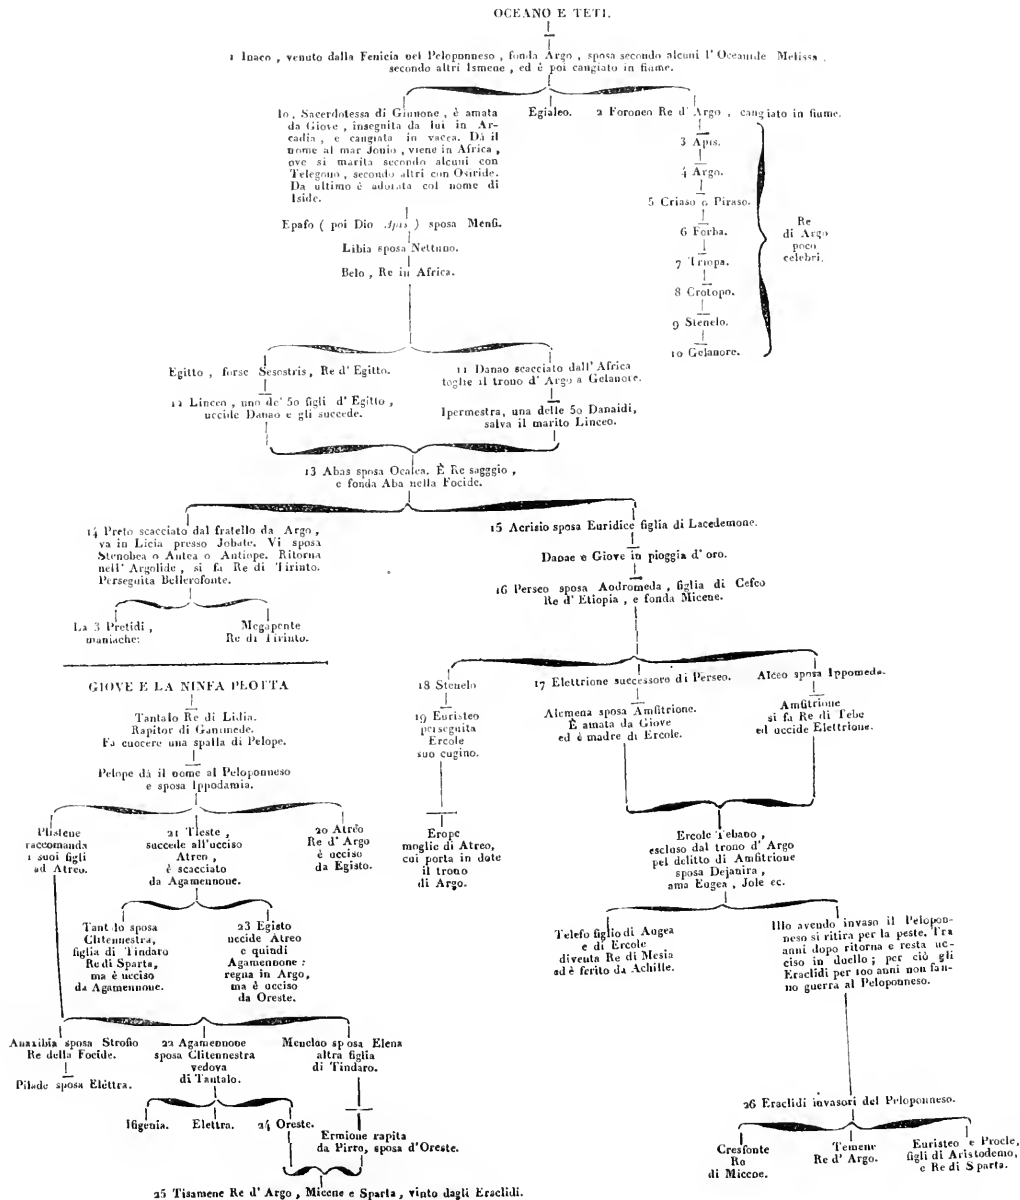 OCEANO E TETI.
1 Inaco , venuto dalla Fenicia nel Peloponneso , fonda Argo , sposa secondo alcuni l' Oceanide Melissa ,
secondo altri Ismene , ed è poi cangiato in fiume.
Io, Sacerdotessa di Giunone , è amata
da Giove , insegnita da lui in Ar-
cadia , e cangiata in vacca. Dà il
nome al mar Jonio , viene in Africa ,
ove si marita secondo alcuni con
Telegono , secondo altri con Osiride.
Da ultimo è adorata col nome di
Iside.
Egialeo.
2 Foroneo Re d' Argo , cangiato in fiume.
3 Apis.
4 Argo.
5 Criaso o Piraso.
6 Forba.
7 Triopa.
8 Crotopo.
9 Stenelo.
10 Gelanore.
Re
di Argo
poco
celebri.
Epafo ( poi Dio Apis ) sposa Menfi.
Libia sposa Nettuno.
Belo , Re in Africa.
Egitto , forse Sesostris, Re d' Egitto.
12 Linceo , uno de' 50 figli d' Egitto ,
uccide Danao e gli succede.
11 Danao scacciato dall' Africa
toglie il trono d' Argo a Gelanore.
Ipermestra, una delle 50 Danaidi,
salva il marito Linceo.
13 Abas sposa Ocalea. È Re sagggio ,
e fonda Aba nella Focide.
14 Preto scacciato dal fratello da Argo ,
va in Licia presso Jobate. Vi sposa
Stenobea o Antea o Antiope. Ritorna
nell' Argolide , si fa Re di Tirinto.
Perseguita Bellerofonte.
La 3 Pretidi ,
maniache:
Megapente
Re di Tirinto.
15 Acrisio sposa Euridice figlia di Lacedemone.
Danae e Giove in pioggia d' oro.
16 Perseo sposa Andromeda , figlia di Cefeo
Re d' Etiopia , e fonda Micene.
18 Stenelo
19 Euristeo
perseguita
Ercole
suo cugino.
Erope
moglie di Atreo,
cui porta in dote
il trono
di Argo.
17 Elettrione successoro di Perseo.
Alcmena sposa Amfitrione.
È amata da Giove
ed è madre di Ercole.
Alceo sposa Ippomeda.
Amfitrione
si fa Re di Tebe
ed uccide Elettrione.
Ercole Tebano ,
escluso dal trono d' Argo
pel delitto di Amfitrione
sposa Dejanira ,
ama Eugea , Jole ec.
Telefo figlio di Augea
e di Ercole
diventa Re di Mesia
ed è ferito da Achille.
Illo avendo invaso il Pelopon-
neso si ritira per la peste. Tra
anni dopo ritorna e resta uc-
ciso in duello ; per ciò gli
Eraclidi per 100 anni non fan-
no guerra al Peloponneso.
26 Eraclidi invasori del Peloponneso.
Cresfonte
Ro
di Miccoe.
Temene
Re d' Argo.
Euristeo e Procle,
figli di Aristodemo,
e Re di Sparta.
GIOVE E LA NINFA PLOTTA
Tantalo Re di Lidia.
Rapitor di Ganimede.
Fa cuocere una spalla di Pelope.
Pelope dà il nome al Peloponneso
e sposa Ippodamia.
Plistene
raccomanda
i suoi figli
ad Atreo.
21 Tieste ,
succede all'ucciso
Atreo ,
è scacciato
da Agamennone.
20 Atreo
Re d' Argo
è ucciso
da Egisto.
Tantalo sposa
Clitennestra,
figlia di Tindaro
Re di Sparta,
ma è ucciso
da Agamennone.
23 Egisto
uccide Atreo
e quindi
Agamennone :
regna in Argo,
ma è ucciso
da Oreste.
Anaxibia sposa Strofio
Re della Focide.
Pilade sposa Elettra.
22 Agamennone
sposa Clitennestra
vedova
di Tantalo.
Menelao sposa Elena
altra figlia
di Tindaro.
Ifigenia.
Elettra.
24 Oreste.
Ermione rapita
da Pirro, sposa d'Oreste.
25 Tisamene Re d' Argo , Micene e Sparta, vinto dagli Eraclidi.